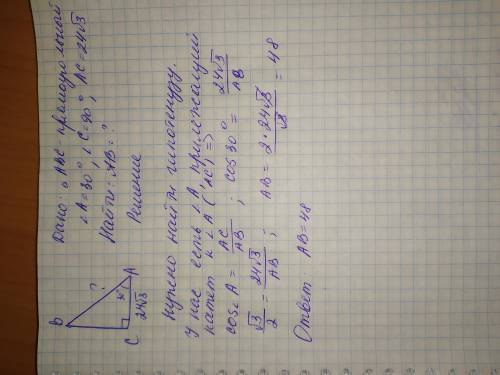 Дано: △ABC- прямоугольный
∠A=30°, ∠C=90°, AC=24√3
Найти: AB=?
Решение
B
?
A
30°
C
24√3
Нужно найти гипотенузу.
У нас есть ∠A, прилежащий
катет к ∠A (AC) =>
cos∠A = AC/AB ; cos30° = 24√3/AB
√3/2 = 24√3/AB ; AB = 2·24√3/√3 = 48
Ответ: AB=48